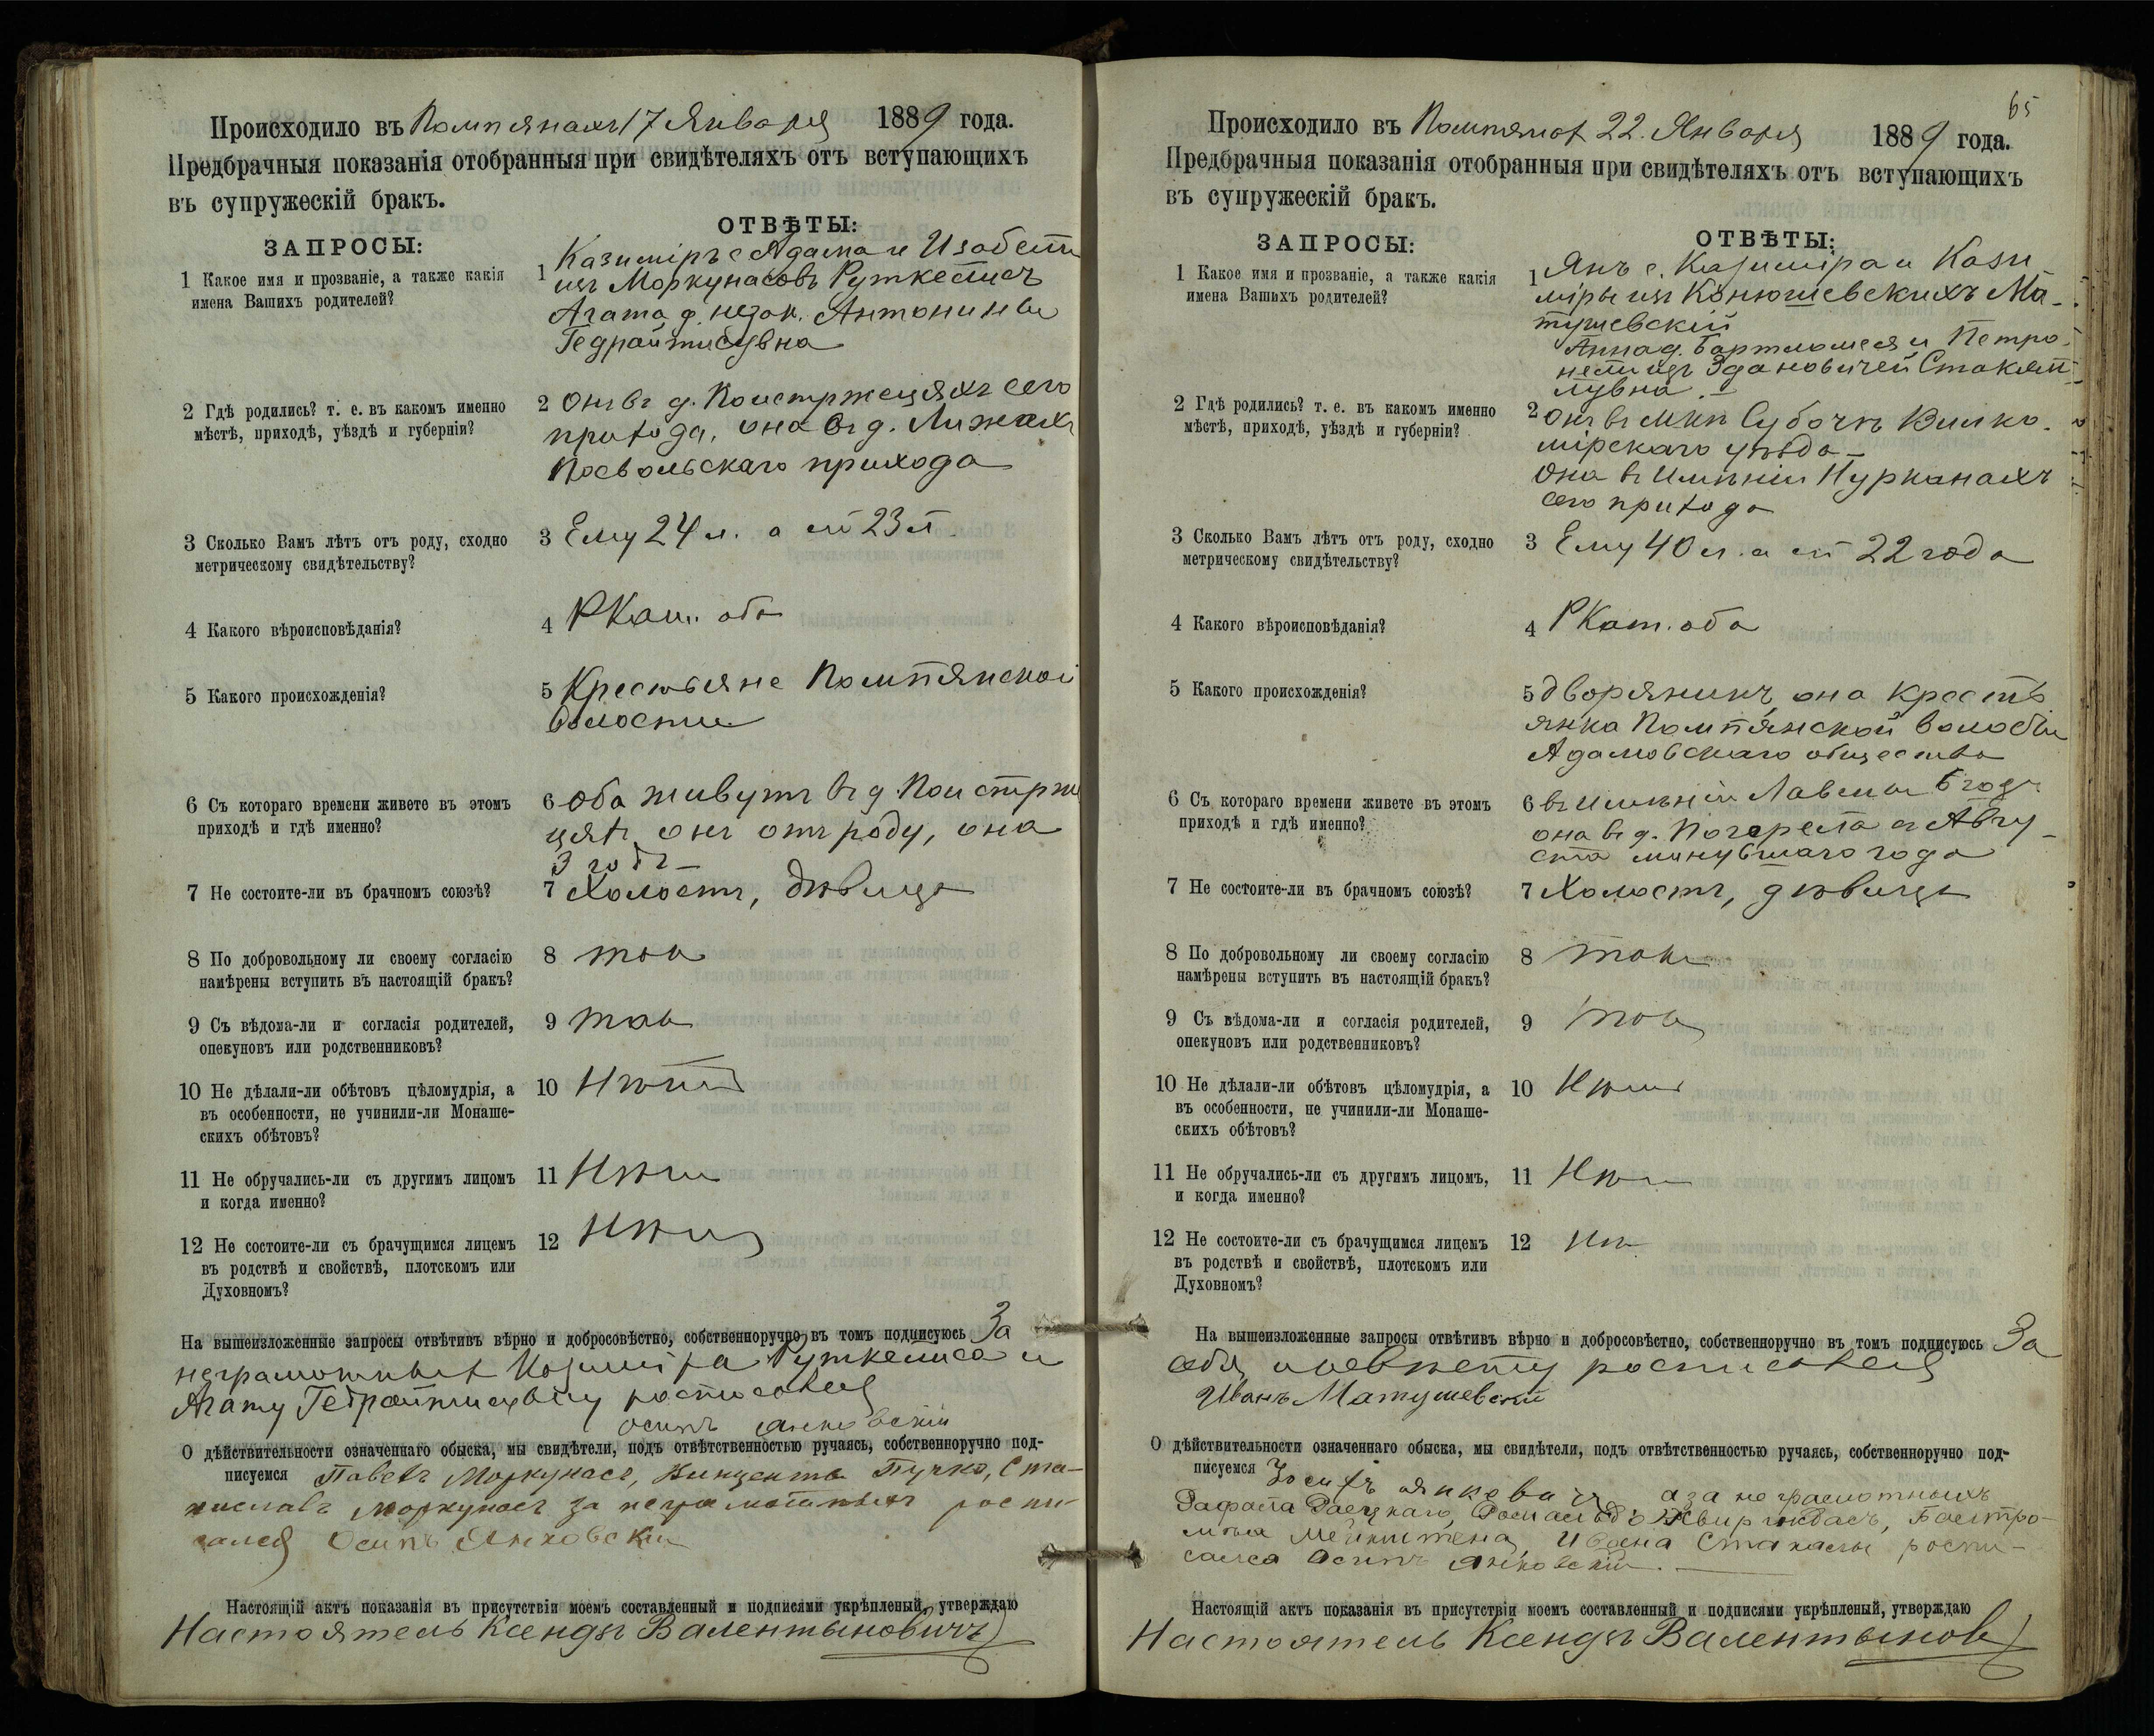 Происходило въ Помпянахъ 17 Января 1889 года.
Предбрачныя показанія отобранныя при свидѣтеляхъ отъ вступающихъ
въ супружескій бракъ.
ЗАПРОСЫ:
ОТВѢТЫ:
1 Какое имя и прозваніе, а также какія
имена Вашихъ родителей?
1 Казиміръ с. Адама и Изабели
изъ Моркунасовъ Руткелисъ
Агата д. незак. Антонины
Гедрайтисувна
2 Гдѣ родились? т. е. въ какомъ именно
мѣстѣ, приходѣ, уѣздѣ и губерніи?
2 Онъ въ д. сего
прихода, она въ д.
Посвольскаго прихода
3 Сколько Вамъ лѣтъ отъ роду, сходно
метрическому свидѣтельству?
3 Ему 24 л. а ей 23 л
4 Какого вѣроисповѣданія?
4 РКат. оба
5 Какого происхожденія?
5 Крестьяне Помпянской
волости
6 Съ котораго времени живете въ этомъ
приходѣ и гдѣ именно?
6 Оба живутъ въ д
онъ отъ роду, она
3 годъ
7 Не состоите-ли въ брачномъ союзѣ?
7 Холостъ, дѣвица
8 По добровольному ли своему согласію
намѣрены вступить въ настоящій бракъ?
8 так
9 Съ вѣдома-ли и согласія родителей,
опекуновъ или родственниковъ?
9 так
10 Не дѣлали-ли обѣтовъ цѣломудрія, а
въ особенности, не учинили-ли Монаше-
скихъ обѣтовъ?
10 Нѣтъ
11 Не обручались-ли съ другимъ лицомъ
и когда именно?
11 Нѣтъ
12 Не состоите-ли съ брачущимся лицемъ
въ родствѣ и свойствѣ, плотскомъ или
Духовномъ?
12 Нѣтъ
На вышеизложенные запросы отвѣтивъ вѣрно и добросовѣстно, собственноручно въ томъ подписуюсь За
неграмотныхъ Казиміра Руткелиса и
Агату Гедрайтисувну росписался
Осипъ Янковскій
О дѣйствительности означеннаго обыска, мы свидѣтели, подъ отвѣтственностью ручаясь, собственноручно под-
писуемся Павелъ Моркунасъ, Винцентъ Пучко, Ста-
ниславъ Моркунасъ за неграмотныхъ роспи-
сался Осипъ Янковскій
Настоящій актъ показанія въ присутствіи моемъ составленный и подписями укрѣпленый, утверждаю
Настоятель Ксендзъ Валентыновичъ
65
Происходило въ Помпянах 22 Января 1889 года.
Предбрачныя показанія отобранныя при свидѣтеляхъ отъ вступающихъ
въ супружескій бракъ.
ЗАПРОСЫ:
ОТВѢТЫ:
1 Какое имя и прозваніе, а также какія
имена Вашихъ родителей?
1 Янъ с. Казиміра и Кази-
міры изъ Конюшевскихъ Ма-
тушевскій
Анна д. Бартломея и Петро-
нели изъ Здановичей
2 Гдѣ родились? т. е. въ какомъ именно
мѣстѣ, приходѣ, уѣздѣ и губерніи?
2 Онъ въ Мѣст Суботѣ Вилко-
мірскаго уѣзда
Она въ Имѣніи Пурканахъ
сего прихода
3 Сколько Вамъ лѣтъ отъ роду, сходно
метрическому свидѣтельству?
3 Ему 40 л. а ей 22 года
4 Какого вѣроисповѣданія?
4 РКат. оба
5 Какого происхожденія?
5 дворянинъ, она кресть
янка Помпянской волости
Адамовскаго общества
6 Съ котораго времени живете въ этомъ
приходѣ и гдѣ именно?
6 въ Имѣніи 5 годъ
она въ д. съ Авгу-
ста минувшаго года
7 Не состоите-ли въ брачномъ союзѣ?
7 Холостъ, дѣвица
8 По добровольному ли своему согласію
намѣрены вступить въ настоящій бракъ?
8 такъ
9 Съ вѣдома-ли и согласія родителей,
опекуновъ или родственниковъ?
9 так
10 Не дѣлали-ли обѣтовъ цѣломудрія, а
въ особенности, не учинили-ли Монаше-
скихъ обѣтовъ?
10 Нѣтъ
11 Не обручались-ли съ другимъ лицомъ,
и когда именно?
11 Нѣтъ
12 Не состоите-ли съ брачущимся лицемъ
въ родствѣ и свойствѣ, плотскомъ или
Духовномъ?
12 Нѣт
На вышеизложенные запросы отвѣтивъ вѣрно и добросовѣстно, собственноручно въ томъ подписуюсь За
себя и невѣсту росписался
Иванъ Матушевскій
О дѣйствительности означеннаго обыска, мы свидѣтели, подъ отвѣтственностью ручаясь, собственноручно под-
писуемся а за неграмотныхъ
Ивана роспи-
сался Осипъ Янковскій.
Настоящій актъ показанія въ присутствіи моемъ составленный и подписями укрѣпленый, утверждаю
Настоятель Ксендзъ Валентынов